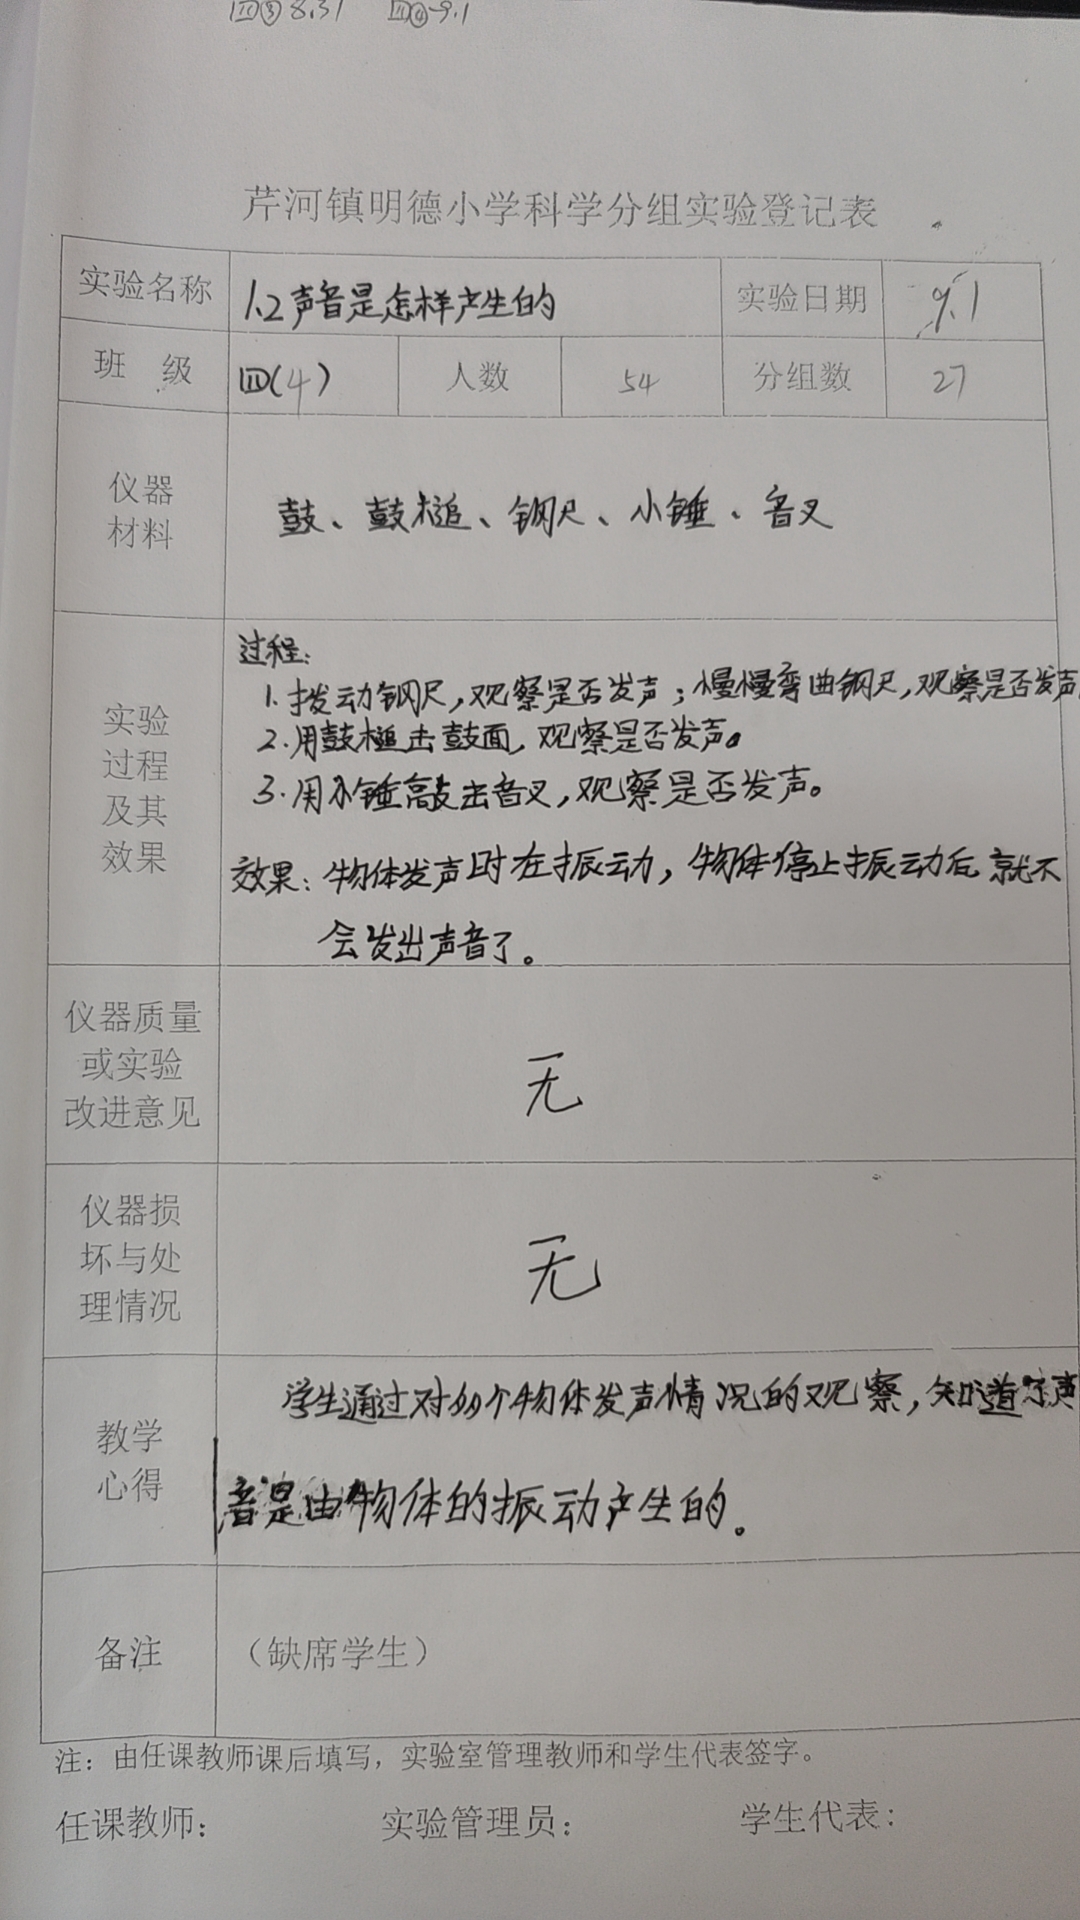 四③8.31 四④-9.1
芹河镇明德小学科学分组实验登记表
实验名称 1.2声音是怎样产生的 实验日期 9.1
班 级 四(4) 人数 54 分组数 27
仪器
材料
鼓、鼓槌、钢尺、小锤、音叉
实验
过程
及其
效果
过程:
1.拨动钢尺,观察是否发声;慢慢弯曲钢尺,观察是否发声
2.用鼓槌击鼓面,观察是否发声。
3.用小锤敲击音叉,观察是否发声。
效果:物体发声时在振动,物体停止振动后就不
会发出声音了。
仪器质量
或实验
改进意见
无
仪器损
坏与处
理情况
无
教学
心得
学生通过对多个物体发声情况的观察,知道了声
音是由物体的振动产生的。
备注 (缺席学生)
注:由任课教师课后填写,实验室管理教师和学生代表签字。
任课教师: 实验管理员: 学生代表: